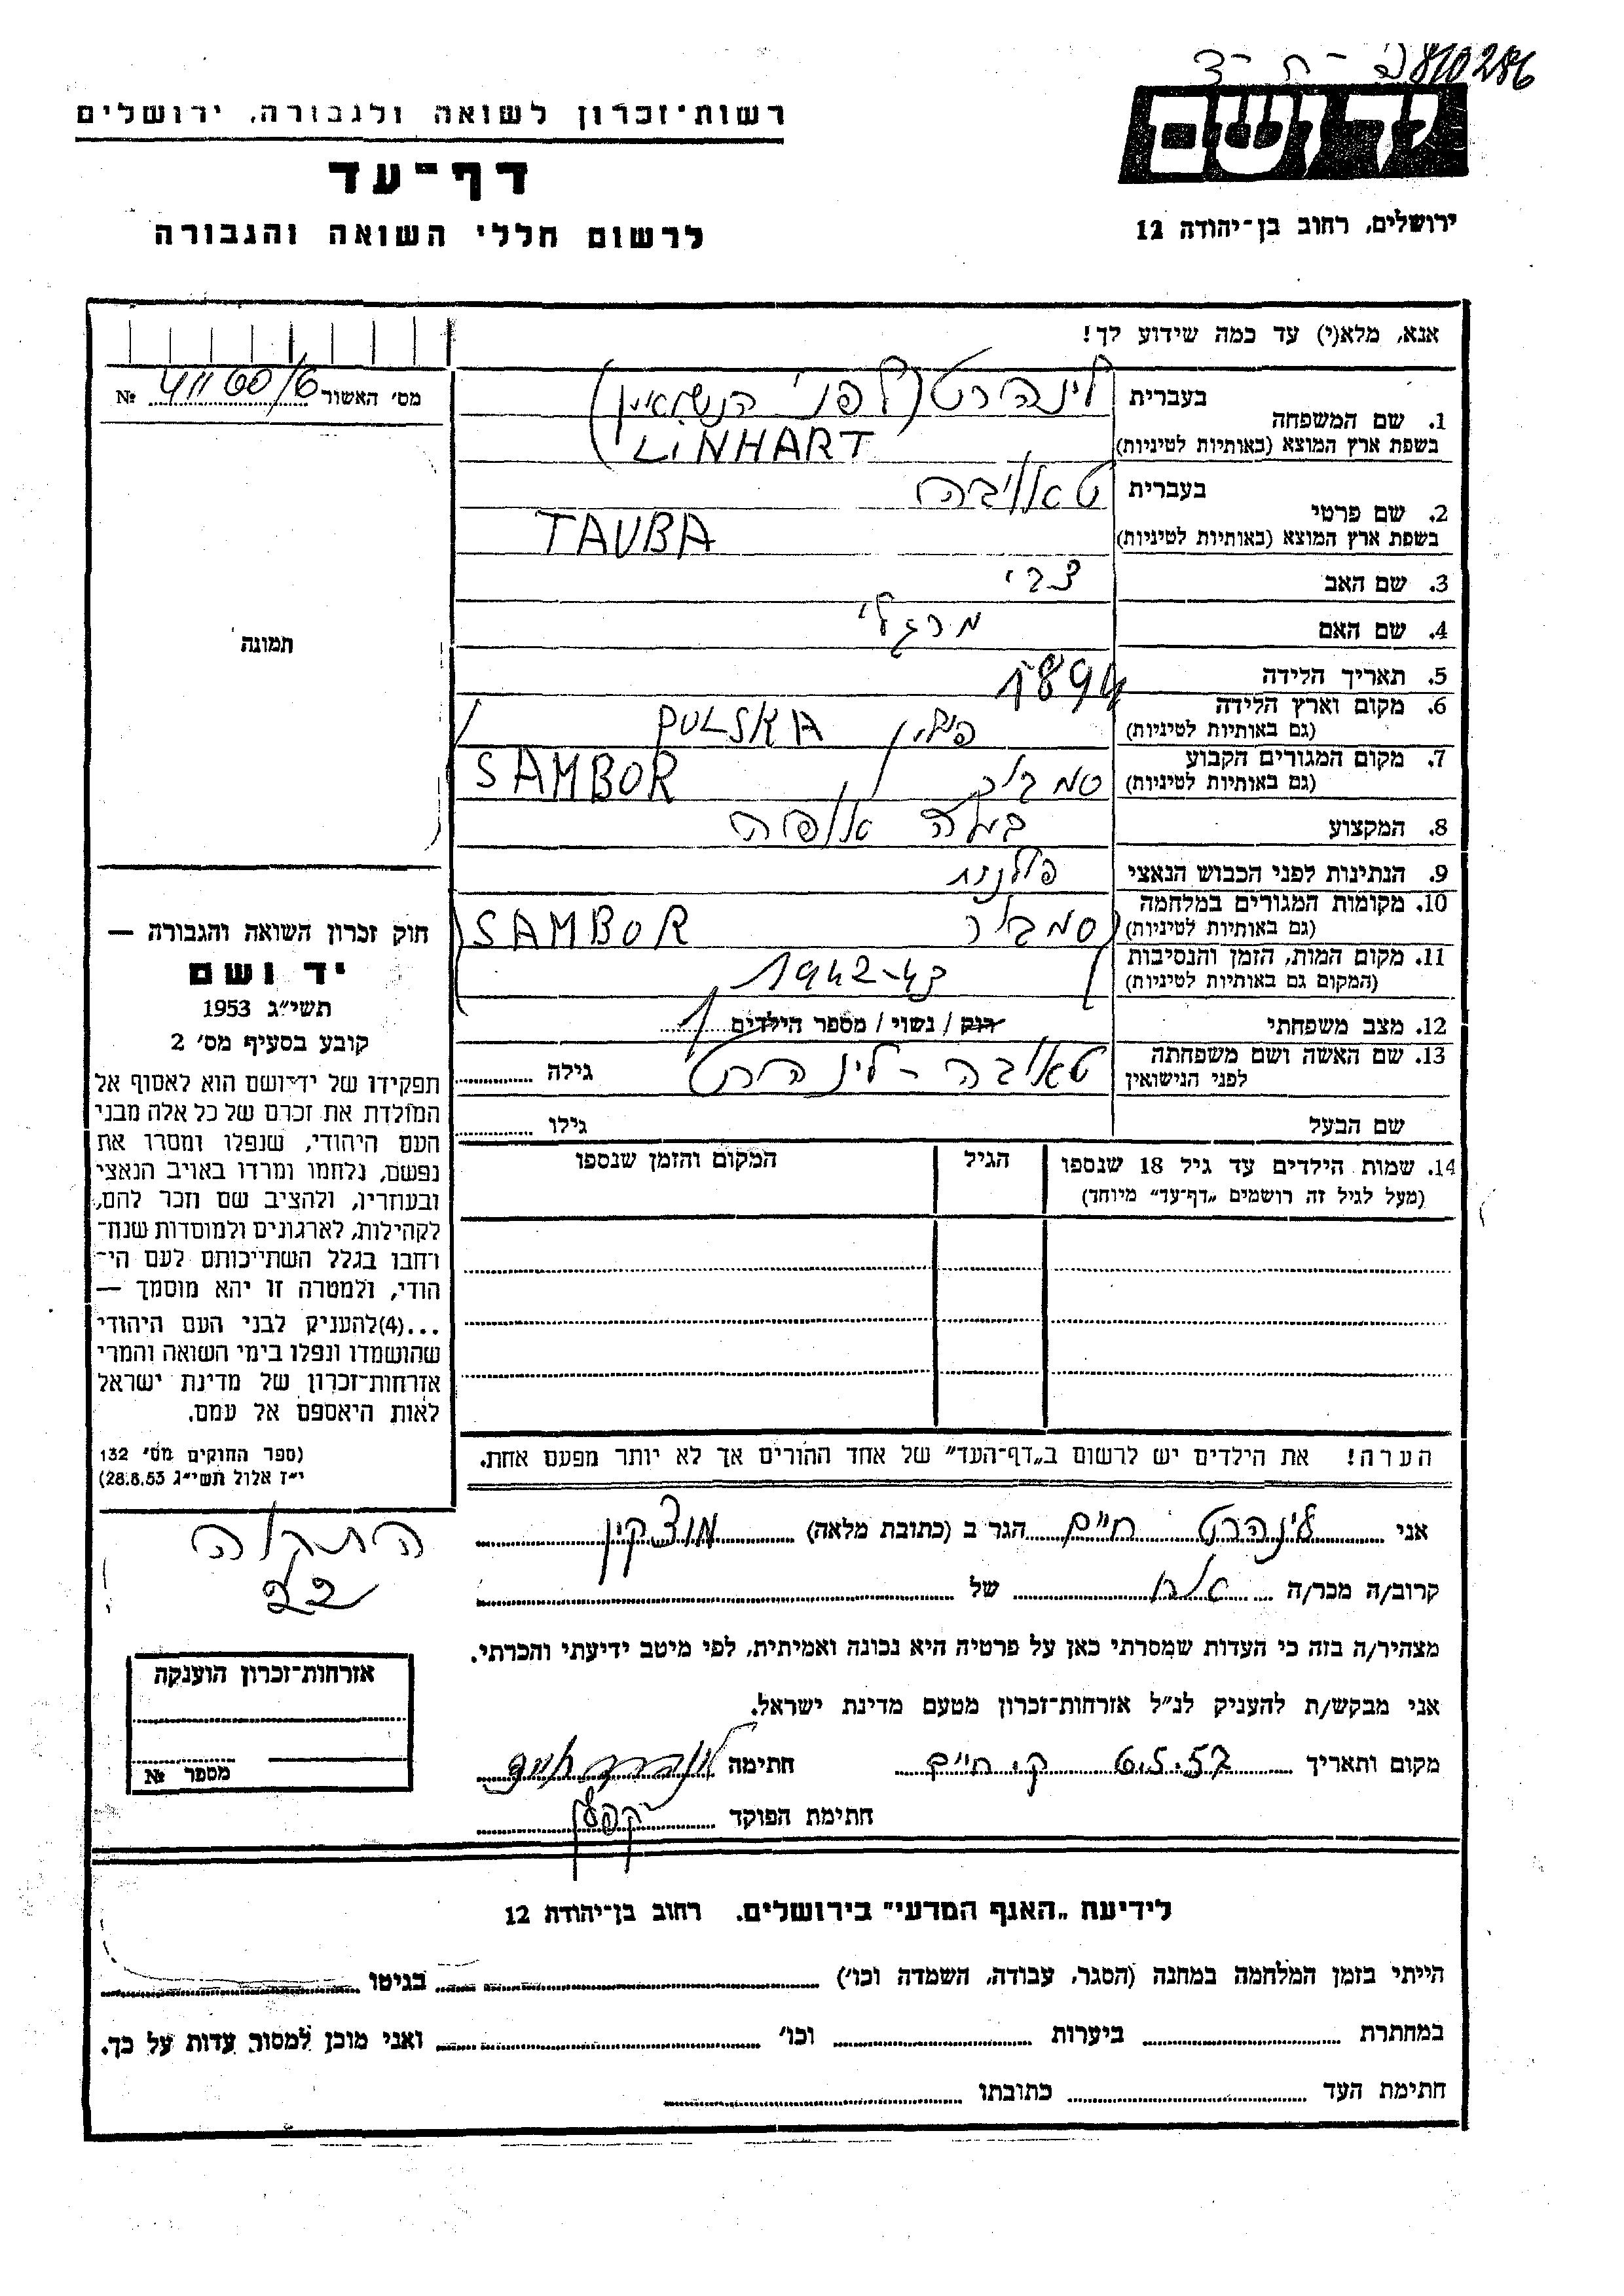 810286
רשות־זכרון לשואה ולגבורה, ירושלים
דף־עד
לרשום חללי השואה והגבורה
יד ושם
ירושלים, רחוב בן־יהודה 12
אנא, מלא(י) עד כמה שידוע לך!
מס׳ האשור 41160/6 №
1. שם המשפחה
בעברית לינהרט (לפני הנשואין)
בשפת ארץ המוצא (באותיות לטיניות) LINHART
2. שם פרטי
בעברית טאובה
בשפת ארץ המוצא (באותיות לטיניות) TAUBA
3. שם האב צבי
4. שם האם מרגלי
5. תאריך הלידה 1894
6. מקום וארץ הלידה
(גם באותיות לטיניות) פולין POLSKA
7. מקום המגורים הקבוע
(גם באותיות לטיניות) סמבור SAMBOR
8. המקצוע
9. הנתינות לפני הכבוש הנאצי פולנית
10. מקומות המגורים במלחמה
(גם באותיות לטיניות) סמבור SAMBOR
11. מקום המות, הזמן והנסיבות
(המקום גם באותיות לטיניות) 1942-43
12. מצב משפחתי רווק / נשוי / מספר הילדים 1
13. שם האשה ושם משפחתה
לפני הנישואין טאובה - לינהרט גילה
שם הבעל גילו
14. שמות הילדים עד גיל 18 שנספו
(מעל לגיל זה רושמים „דף־עד" מיוחד)
הגיל
המקום והזמן שנספו
הערה! את הילדים יש לרשום ב„דף־העד" של אחד ההורים אך לא יותר מפעם אחת.
תמונה
חוק זכרון השואה והגבורה —
יד ושם
תשי״ג 1953
קובע בסעיף מס׳ 2
תפקידו של יד־ושם הוא לאסוף אל
המולדת את זכרם של כל אלה מבני
העם היהודי, שנפלו ומסרו את
נפשם, נלחמו ומרדו באויב הנאצי
ובעוזריו, ולהציב שם וזכר להם,
לקהילות, לארגונים ולמוסדות שנח־
רבו בגלל השתייכותם לעם הי־
הודי, ולמטרה זו יהא מוסמך —
...(4)להעניק לבני העם היהודי
שהושמדו ונפלו בימי השואה והמרי
אזרחות־זכרון של מדינת ישראל
לאות היאספם אל עמם.
(ספר החוקים מס׳ 132
י״ז אלול תשי״ג 28.8.53)
אני לינהרט חיים הגר ב (כתובת מלאה) מוצקין
התקוה
22
קרוב/ה מכר/ה אח של
מצהיר/ה בזה כי העדות שמסרתי כאן על פרטיה היא נכונה ואמיתית, לפי מיטב ידיעתי והכרתי.
אני מבקש/ת להעניק לנ״ל אזרחות־זכרון מטעם מדינת ישראל.
מקום ותאריך 6.5.57 ק. חיים חתימה לינהרט חיים
חתימת הפוקד
אזרחות־זכרון הוענקה
מספר №
לידיעת „האגף המדעי" בירושלים. רחוב בן־יהודת 12
הייתי בזמן המלחמה במחנה (הסגר, עבודה, השמדה וכו׳) בגיטו
במחתרת ביערות וכו׳ ואני מוכן למסור עדות על כך.
חתימת העד כתובתו